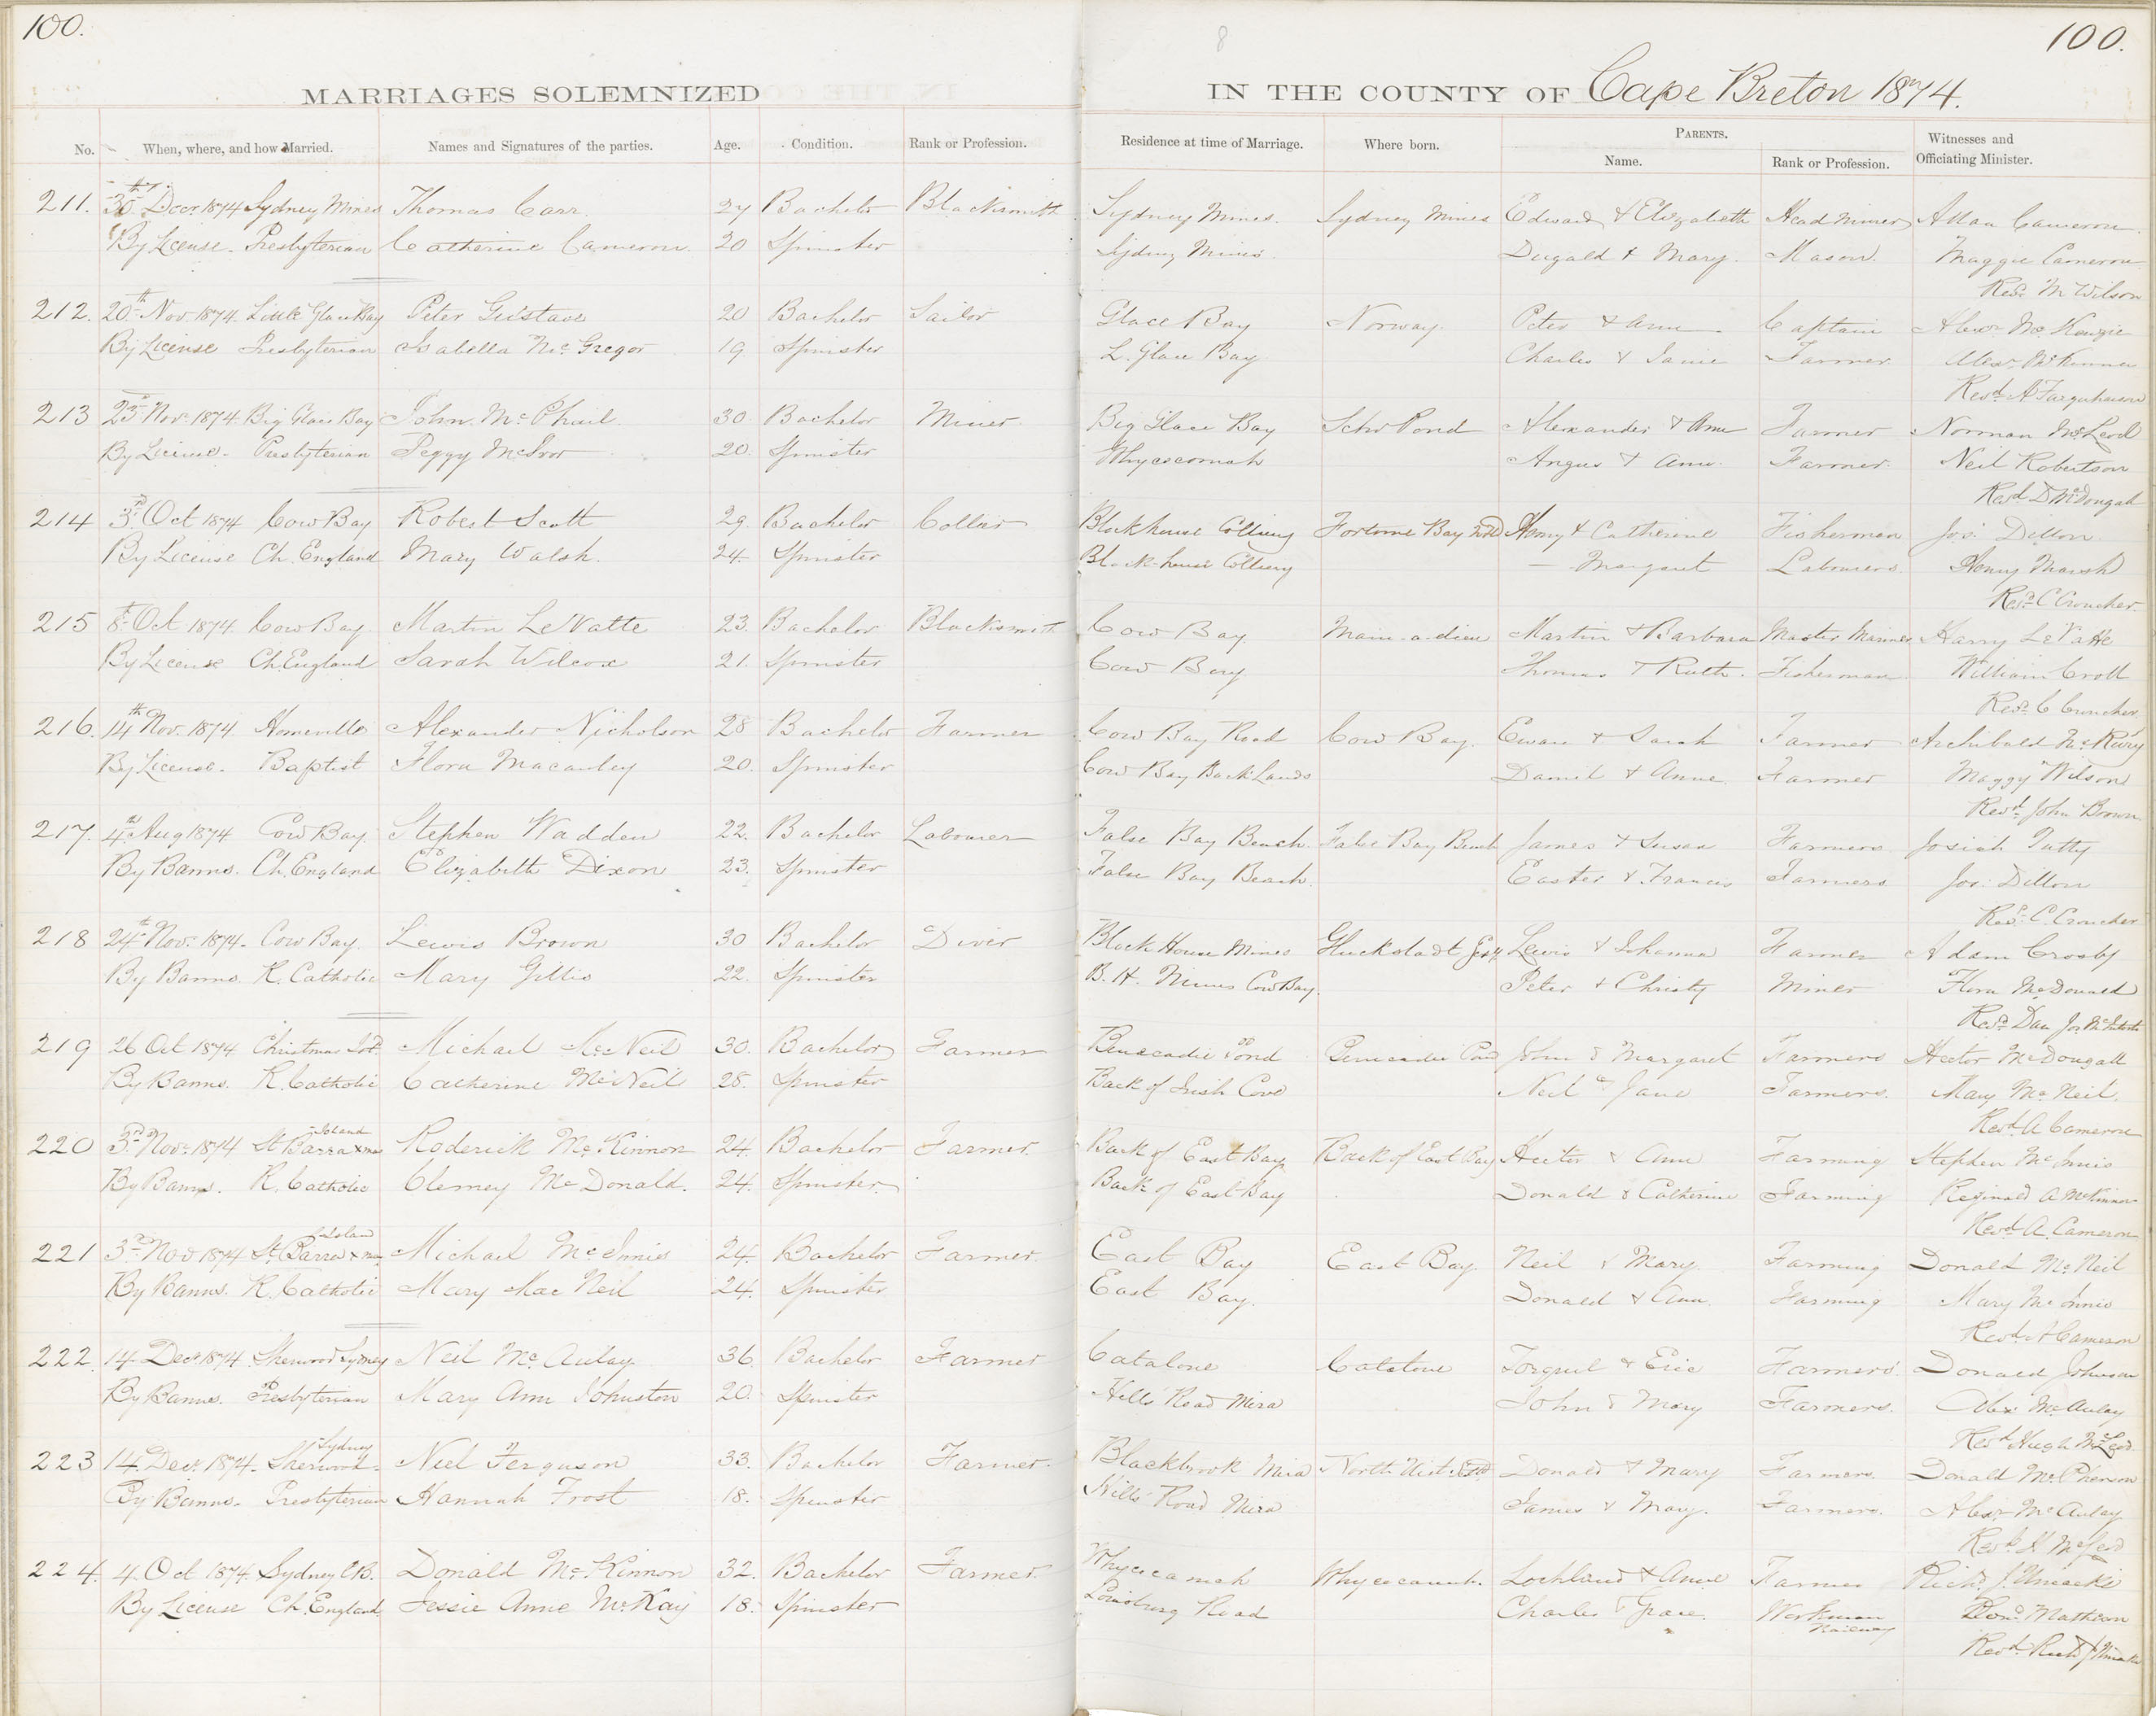 100.
8
100.
MARRIAGES SOLEMNIZED IN THE COUNTY OF Cape Breton 1874.
No. When, where, and how Married. Names and Signatures of the parties. Age. Condition. Rank or Profession. Residence at time of Marriage. Where born. PARENTS. Name. Rank or Profession. Witnesses and Officiating Minister.
211. 30th Decr 1874 Sydney Mines Thomas Carr. 27 Bachelor Blacksmith Sydney Mines. Sydney Mines Edward & Elizabeth Head Miner Allan Cameron
By License. Presbyterian Catherine Cameron. 20 Spinster Sydney Mines. Dugald & Mary. Mason. Maggie Cameron
Revd M Wilson
212. 20th Nov 1874. Little Glace Bay Peter Gustave 20 Bachelor Sailor Glace Bay Norway. Peter & Anne Captain Alexr McKenzie
By License Presbyterian Isabella McGregor 19 Spinster L. Glace Bay Charles & Janie Farmer Alexr McKinnon
Revd A Farquharson
213 23rd Nov. 1874. Big Glace Bay John McPhail. 30 Bachelor Miner Big Glace Bay Schr Pond Alexander & Ann Farmer Norman McLeod
By License. Presbyterian Peggy McIvor 20. Spinster Whycocomah Angus & Ann. Farmer. Neil Robertson
Revd D McDougall
214 3rd Oct 1874 Cow Bay Robert Scott 29. Bachelor Collier Blockhouse Colliery Fortune Bay Nfld Henry & Catherine Fisherman Jos. Dillon
By License Ch. England Mary Walsh. 24. Spinster Block-house Colliery — Margaret Labourers. Henry Marsh
Revd C Croucher.
215 8th Oct 1874. Cow Bay. Martin LeVatte 23. Bachelor Blacksmith Cow Bay Main-a-dieu Martin & Barbara Master Mariner Harry LeVatte
By License Ch. England Sarah Wilcox 21. Spinster Cow Bay Thomas & Ruth. Fisherman William Croll
Revd C Croucher.
216. 14th Nov. 1874 Homeville Alexander Nicholson 28 Bachelor Farmer Cow Bay Road Cow Bay. Ewan & Sarah Farmer Archibald McKury
By License. Baptist Flora Macauley 20. Spinster Cow Bay Back Lands Daniel & Anne Farmer Maggy Wilson
Revd John Brown
217. 4th Aug 1874 Cow Bay. Stephen Wadden 22. Bachelor Labourer False Bay Beach. False Bay Beach James & Susan Farmers Josiah Tutty
By Banns. Ch. England Elizabeth Dixon 23. Spinster False Bay Beach. Easter & Francis Farmers Jos. Dillon
Revd C. Croucher
218 24th Nov. 1874. Cow Bay. Lewis Brown 30 Bachelor Diver Block House Mines Gluckstadt Gery Lewis & Johanna Farmer Adam Crosby
By Banns. R. Catholic Mary Gillis 22. Spinster B. H. Mines Cow Bay. Peter & Christy Miner Flora McDonald
Revd Dan Jos. McIntosh
219 26 Oct 1874 Christmas Isld. Michael McNeil 30. Bachelor Farmer Benacadie Pond Benacadie Pond John & Margaret Farmers Hector McDougall
By Banns. R. Catholic Catherine McNeil 28. Spinster Back of Irish Cove Neil & Jane Farmers. Mary McNeil.
Revd A Cameron
220 3rd Nov. 1874 St Barra Xmas Island Roderick McKinnon 24. Bachelor Farmer. Back of East Bay Back of East Bay Hector & Ann Farming Stephen McInnis
By Banns. R. Catholic Clemey McDonald. 24. Spinster. Back of East Bay Donald & Catherine Farming Reginald A McKinnon
Revd A Cameron
221 3rd Nov 1874 St. Barra Xmas Island Michael McInnis 24. Bachelor Farmer. East Bay East Bay Neil & Mary. Farming Donald McNeil
By Banns. R. Catholic Mary Mac Neil 24. Spinster East Bay. Donald & Ann. Farming Mary McInnis
Revd A Cameron
222. 14 Decr 1874. Sherwood Sydney Neil McAulay 36. Bachelor Farmer Catalone Catalone Torquil & Effie Farmers. Donald Johnson
By Banns. Presbyterian Mary Ann Johnston 20. Spinster Hills Road Mira John & Mary Farmers. Alex McAulay
Revd Hugh McLeod.
223 14. Decr 1874. Sherwood Sydney Niel Ferguson 33. Bachelor Farmer. Blackbrook Mira North Uist Scotd Donald & Mary Farmers. Donald McPherson
By Banns. Presbyterian Hannah Frost 18. Spinster Hills Road Mira James & Mary. Farmers. Alexr McAulay
Revd H McLeod
224. 4. Oct 1874. Sydney C.B. Donald McKinnon 32. Bachelor Farmer. Whycocomah Whycocomah. Lochland & Anne Farmer Richd. J. Uniacke
By License Ch. England Jessie Anne McKay 18. Spinster Louisburg Road Charles & Grace. Workman Railway Matheson
Revd Richd J Uniacke